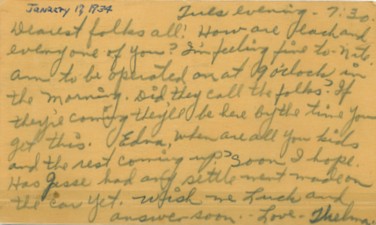 January 17, 1934
Tues evening - 7:30.
Dearest folks all! How are each and
everyone of you? I'm feeling fine to-nite.
am to be operated on at 9 o'clock in
the morning. Did they call the folks? If
they're coming they'll be here by the time you
get this. Edna, when are all you kids
and the rest coming up? Soon I hope.
Has Jesse had any settlement made on
the car yet. Wish me luck and
answer soon. - Love - Thelma.